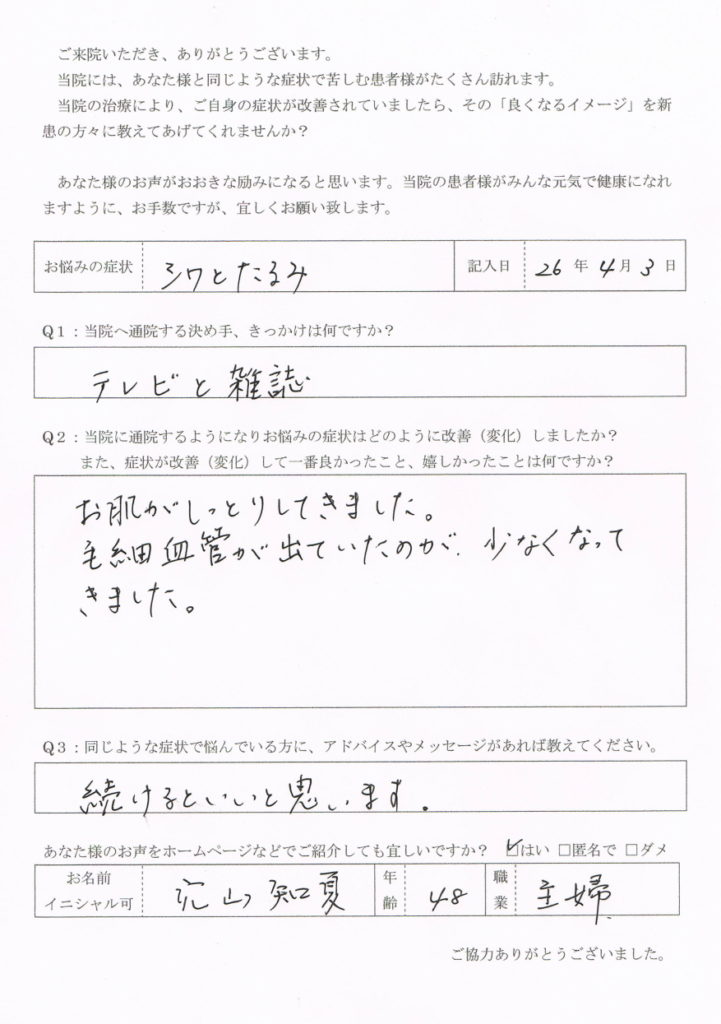 ご来院いただき、ありがとうございます。
当院には、あなた様と同じような症状で苦しむ患者様がたくさん訪れます。
当院の治療により、ご自身の症状が改善されていましたら、その「良くなるイメージ」を新
患の方々に教えてあげてくれませんか？
あなた様のお声がおおきな励みになると思います。当院の患者様がみんな元気で健康になれ
ますように、お手数ですが、宜しくお願い致します。
お悩みの症状 シワとたるみ 記入日 26 年 4 月 3 日
Q1：当院へ通院する決め手、きっかけは何ですか？
テレビと雑誌
Q2：当院に通院するようになりお悩みの症状はどのように改善（変化）しましたか？
また、症状が改善（変化）して一番良かったこと、嬉しかったことは何ですか？
お肌がしっとりしてきました。
毛細血管が出ていたのが、少なくなって
きました。
Q3：同じような症状で悩んでいる方に、アドバイスやメッセージがあれば教えてください。
続けるといいと思います。
あなた様のお声をホームページなどでご紹介しても宜しいですか？ ☑はい □匿名で □ダメ
お名前 イニシャル可 山 知夏 年齢 48 職業 主婦
ご協力ありがとうございました。